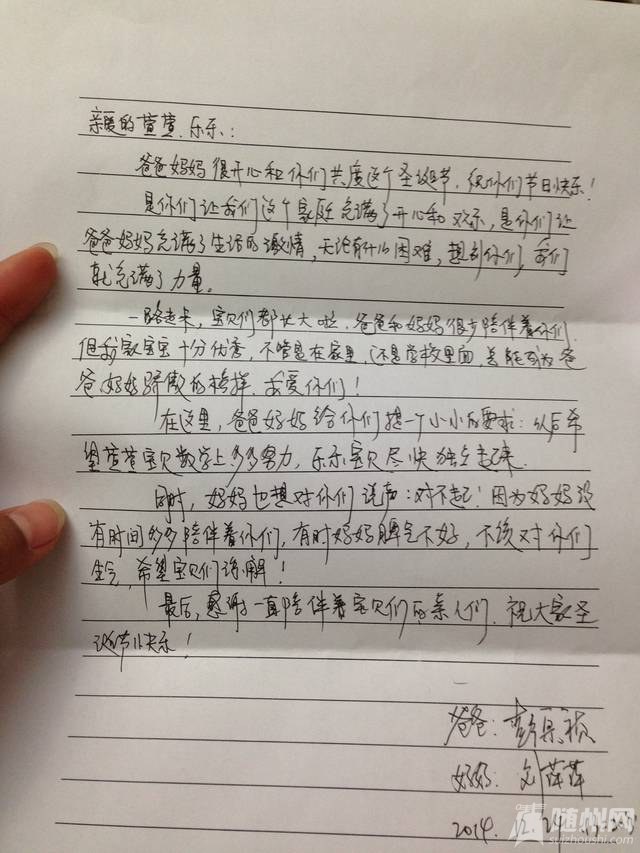 亲爱的萱萱、乐乐:
爸爸妈妈很开心和你们共度这个圣诞节，祝你们节日快乐！
是你们让我们这个家庭充满了开心和欢乐，是你们让
爸爸妈妈充满了生活的激情，无论有什么困难，想到你们，我们
就充满了力量。
一路走来，宝贝们都长大啦，爸爸和妈妈很少陪伴着你们
但我家宝宝十分优秀，不管是在家里，还是学校里面，总能成为爸
爸妈妈骄傲的榜样，我爱你们！
在这里，爸爸妈妈给你们提一个小小的要求：以后希
望萱萱宝贝数学上多多努力，乐乐宝贝尽快独立起来。
同时，妈妈也想对你们说声：对不起！因为妈妈没
有时间多多陪伴着你们，有时妈妈脾气不好，不该对你们
生气，希望宝贝们谅解！
最后，感谢一直陪伴着宝贝们的亲人们，祝大家圣
诞节快乐！
爸爸：彭
妈妈：刘萍萍
2014.12.24
随州网
suizhoushi.com